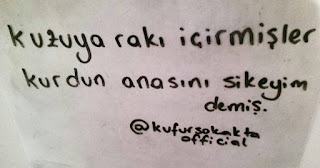 kuzuya rakı içirmişler
kurdun anasını sikeyim
demiş.
@kufursokakta
official